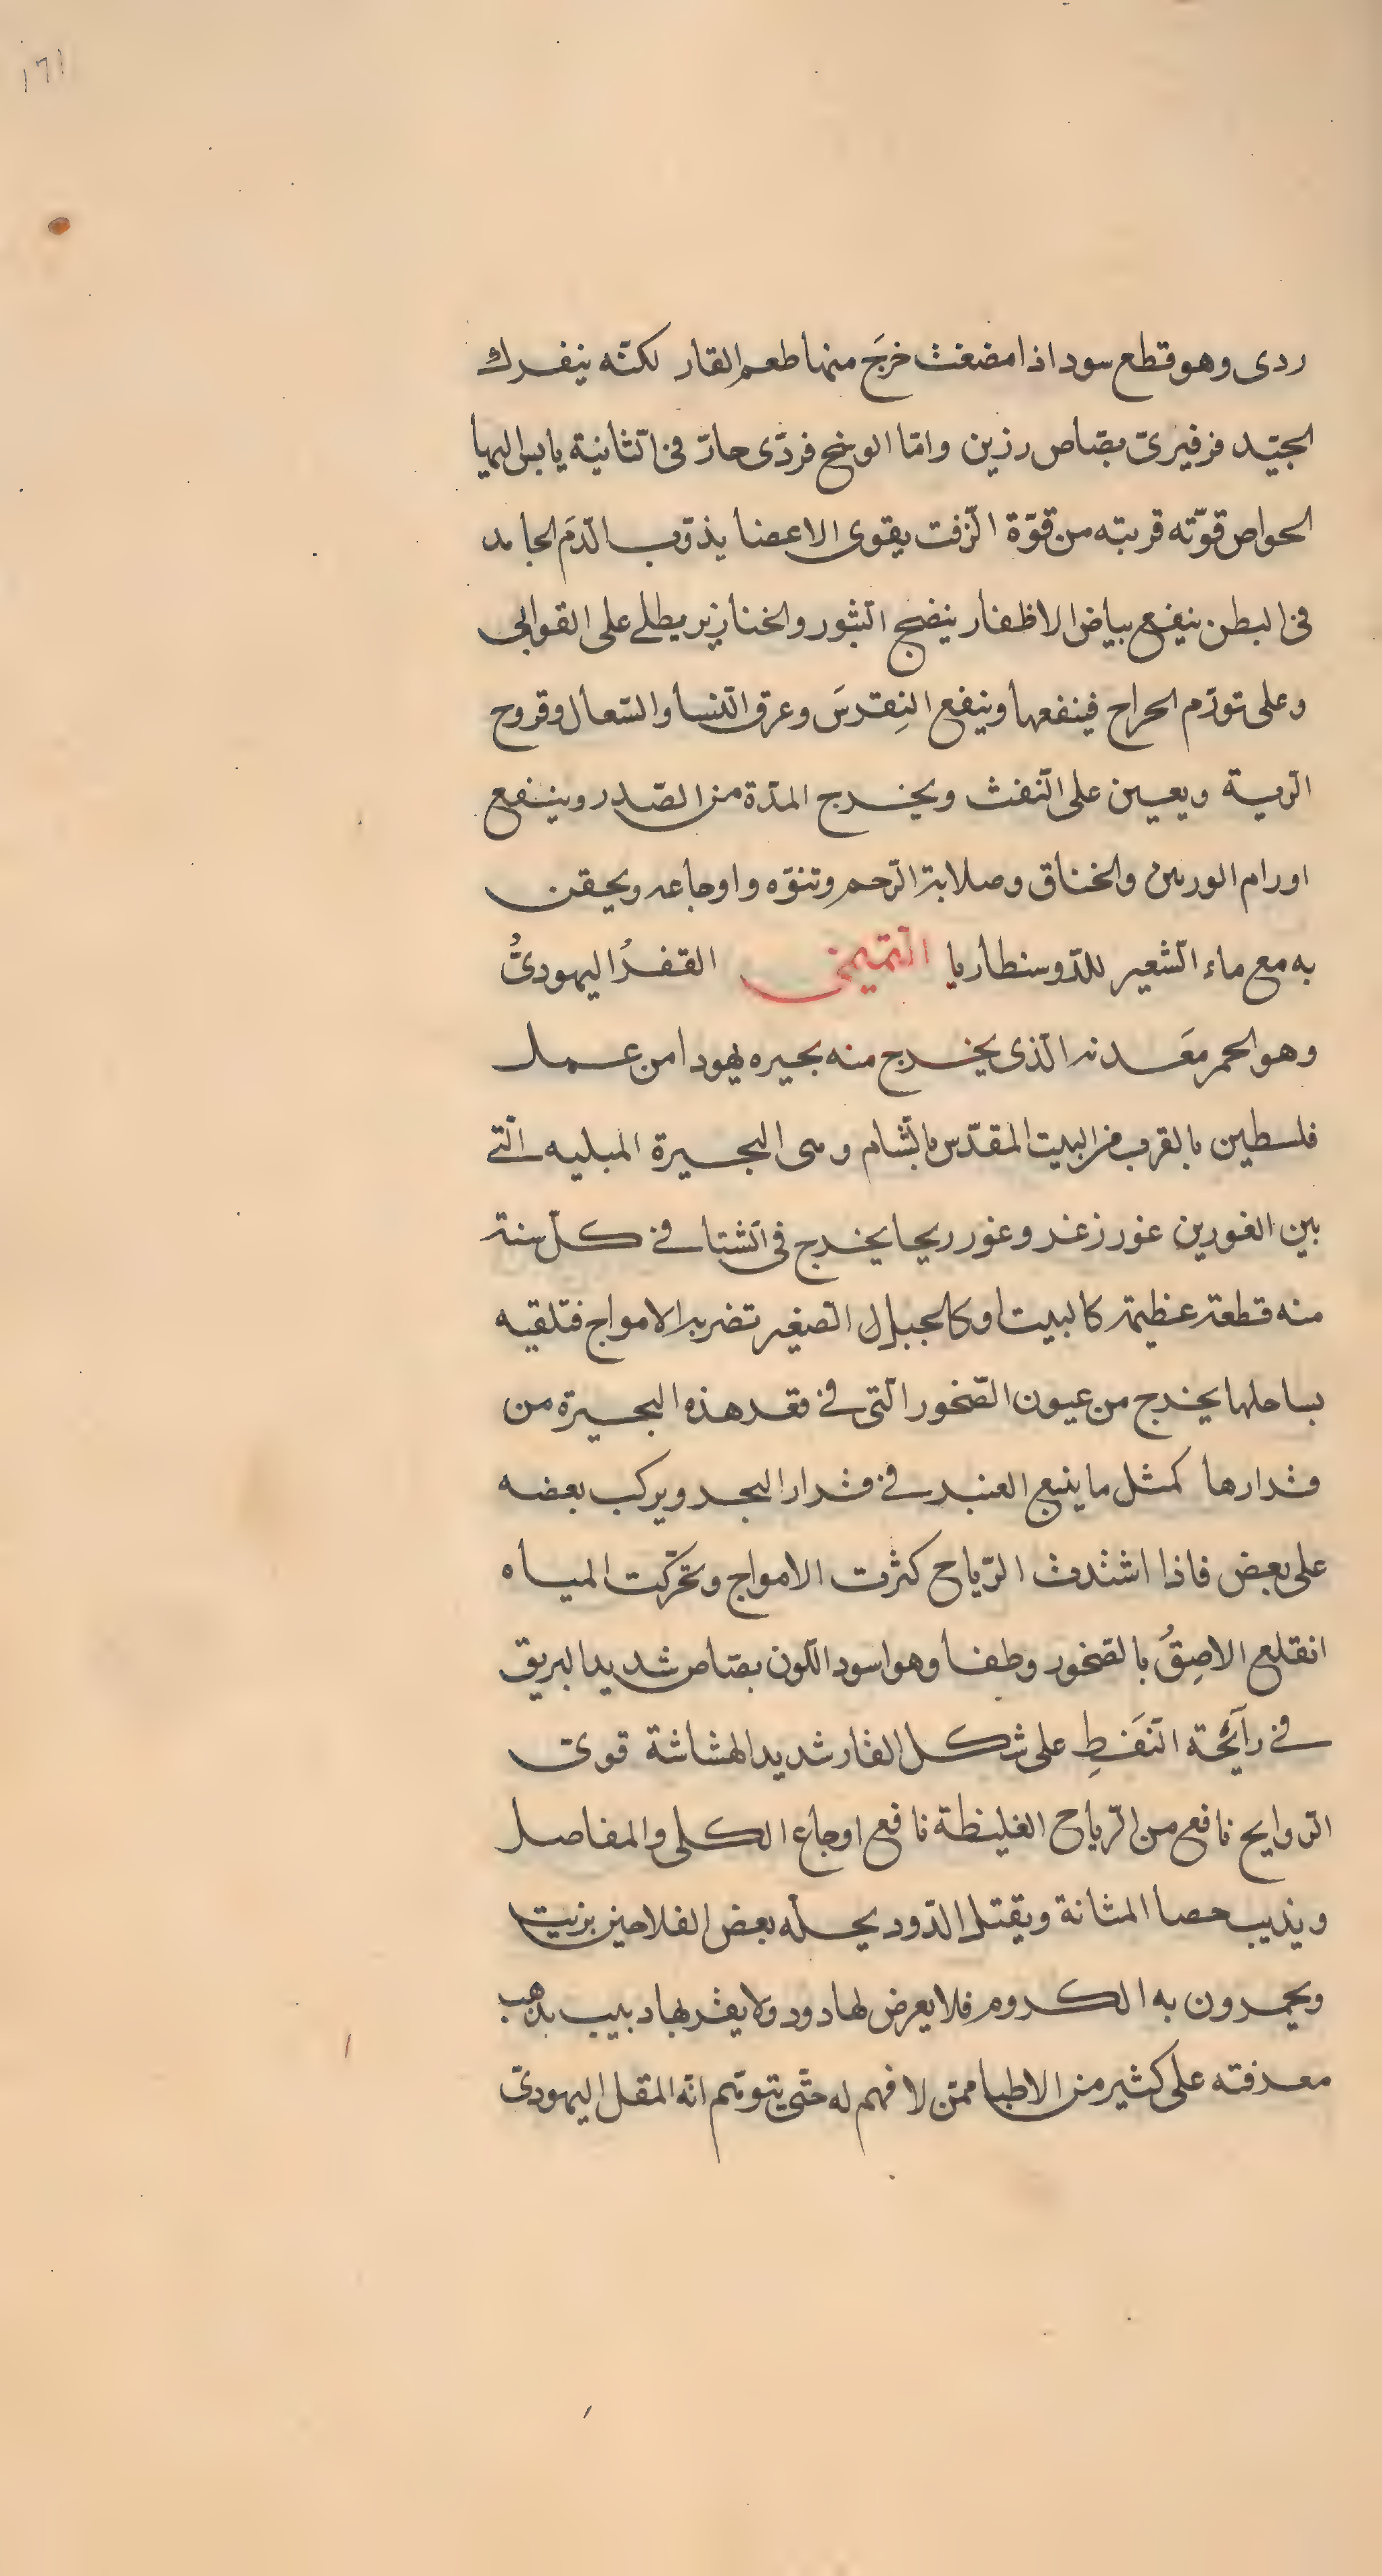 ١٦١
ردى وهو قطع سود اذا مضغت خرجَ منها طعم القار لكنّه ينفرك
الجيّد فرفيرىّ بصّاص رزين وامّا الوسخ فردّى حارّ فى الثّانية يابس اليها
الحواص قوّته قريبه من قوّة الزّفت يقوى الاعضا يذوّب الدّمَ الجامد
فى البطن ينفع بياض الاظفار ينضج البثور والخنازير يطلى على القوابى
وعلى تورّم الجراح فينفعها وينفع النِقرسَ وعرق النّسا والسّعال وقروح
الرّية ويعين على النّفث ويخرج المدّة من الصّدر وينفع
اورام الوريين والخناق وصلابة الرّحم وتنوّه واوجاعه ويحقن
به مع ماء الشّعير للدّوسنطاريا التّميمى القفرُ اليهودىُّ
وهو الحمر معَدنه الّذى يخرج منه بحيره يهودا من عمل
فلسطين بالقرب من البيت المقدّس بالشّام وهى البحيرة المبليه الّتى
بين الغورين غور زغر وغور ريحا يخرج فى الشّتا فى كلّ سنة
منه قطعة عظيمة كالبيت او كالجبال الصّغير تضربه الامواج فتلقيه
بساحلها يخرج من عيون الصّخور الّتى فى قعر هذه البحيرة من
قرارها كمثل ما ينبع العنبر فى قرار البحر ويركب بعضه
على بعض فاذا اشتدت الرّياح كثرت الامواج وتحرّكت المياه
انقلع الاصِقُ بالصّخور وطفا وهو اسود اللّون بصّاص شديد البريق
فى رآئحة النّفَطِ على شكل القار شديد الهشاشة قوىّ
الروايح نافع من الرّياح الغليظة نافع اوجاع الكلى والمفاصل
ويذيب حصا المثانة ويقتل الدّود يحلّه بعض الفلاحين بزيت
ويحمرون به الكروم فلا يعرض لها دود ولا يقربها دبيب يذهب
معرفته على كثير من الاطبا ممّن لا فهم له حتّى يتوهّم انّه المقل اليهودىّ